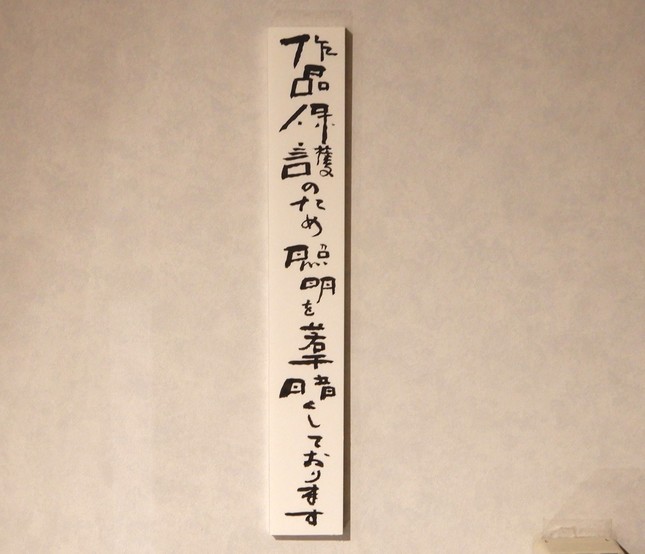 作品保護のため照明を若干暗くしております